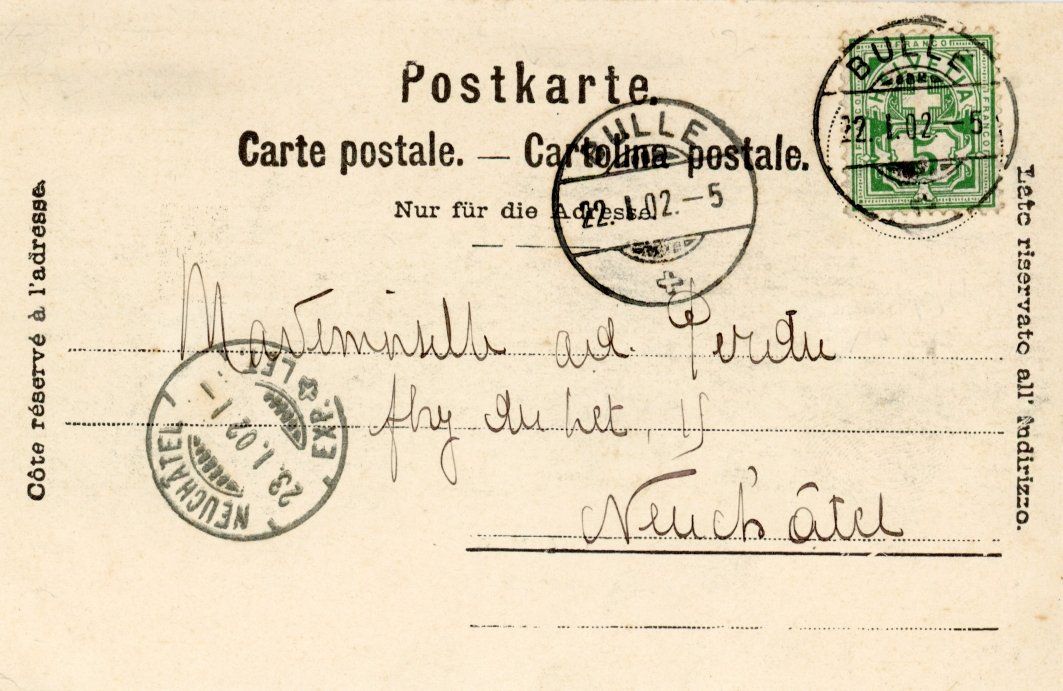 Postkarte.
Carte postale. — Cartolina postale.
Nur für die Adresse.
Côte réservé à l'adresse.
Lato riservato all' Indirizzo.
FRANCO
HELVETIA
FRANCO
FRANCO
5
BULLE
22. I. 02. –5
BULLE
22. I. 02. –5
Mademoiselle
fbg du
Neuchâtel
NEUCHÂTEL
23. I. 02. I –
EXP. LET.